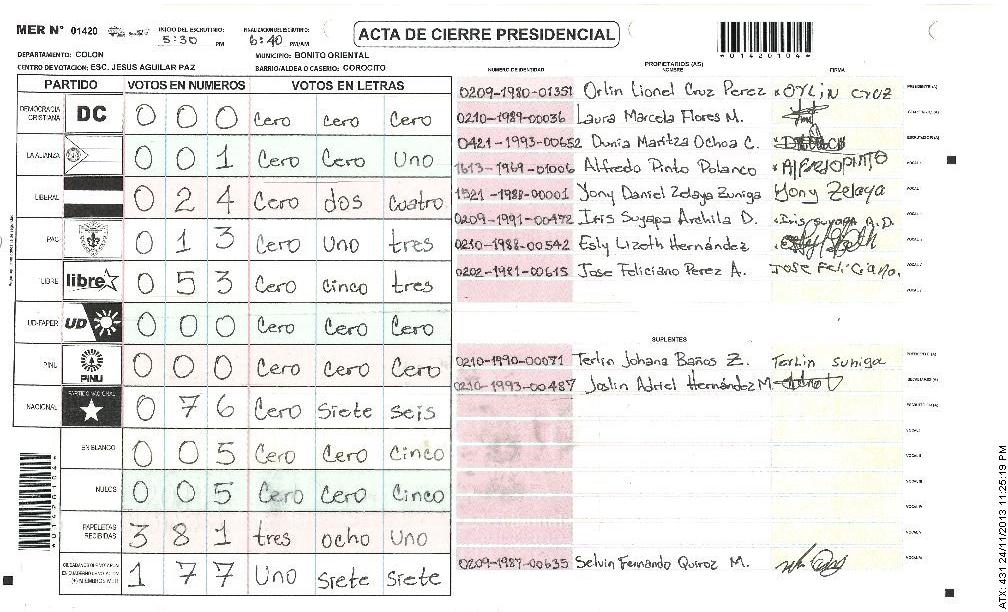 MER N° 01420
INICIO DEL ESCRUTINIO: 5:30 PM
FINALIZACION DEL ESCRUTINIO: 6:40 PM/AM
ACTA DE CIERRE PRESIDENCIAL
*01420104*
DEPARTAMENTO: COLON
MUNICIPIO: BONITO ORIENTAL
CENTRO DE VOTACION: ESC. JESUS AGUILAR PAZ
BARRIO/ALDEA O CASERIO: COROCITO
PARTIDO VOTOS EN NUMEROS VOTOS EN LETRAS
DEMOCRACIA CRISTIANA DC 0 0 0 Cero cero Cero
LA ALIANZA 0 0 1 Cero Cero Uno
LIBERAL 0 2 4 Cero dos cuatro
PAC 0 1 3 Cero Uno tres
LIBRE libre 0 5 3 Cero cinco tres
UD-FAPER UD 0 0 0 Cero Cero Cero
PINU PINU 0 0 0 Cero Cero Cero
NACIONAL PARTIDO NACIONAL 0 7 6 Cero Siete seis
EN BLANCO 0 0 5 Cero Cero Cinco
NULOS 0 0 5 Cero Cero Cinco
PAPELETAS RECIBIDAS 3 8 1 tres ocho Uno
1 7 7 Uno Siete Siete
*01420104*
PROPIETARIOS (AS)
NUMERO DE IDENTIDAD NOMBRE FIRMA
0209-1980-01351 Orlin Lionel Cruz Perez ORLIN CRUZ PRESIDENTE (A)
0210-1989-00036 Laura Marcela Flores M. SECRETARIO (A)
0421-1993-00652 Dunia Maritza Ochoa C. ESCRUTADOR (A)
1613-1969-01006 Alfredo Pinto Polanco AlFREDOPINTO VOCAL I
1521-1988-00001 Yony Daniel Zelaya Zuniga Yony Zelaya
0209-1991-00472 Iris Suyapa Archila D.
0210-1988-00542 Esly Lizeth Hernández
0202-1981-00615 Jose Feliciano Perez A. JOSE FELICIANO.
SUPLENTES
0210-1990-00071 Terlin Johana Baños Z. Terlin Suniga PRESIDENTE (A)
0210-1993-00487 Joslin Adriel Hernández M. SECRETARIO (A)
0209-1987-00635 Selvin Fernando Quiroz M.
ATX: 431 24/11/2013 11:25:19 PM